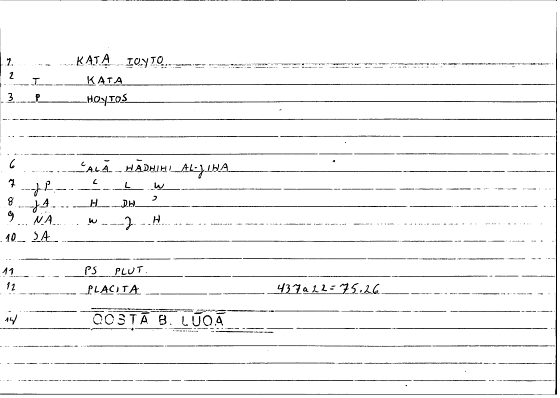 1. KATA TOYTO
2 T KATA
3 P HOYTOS
6 ʿALĀ HĀDHIHI AL-JIHA
7 JP ʿ L W
8 JA H DH ʾ
9 NA W J H
10 SA
11 PS PLUT.
12 PLACITA 437a22=75.26
14 QOSṬĀ B. LŪQĀ